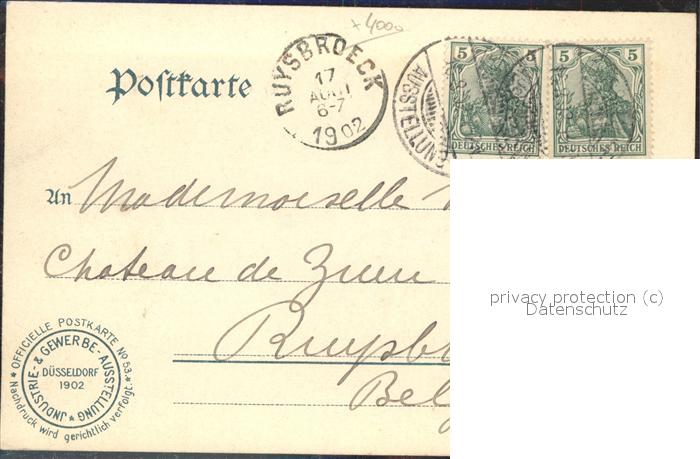 +4000
Postkarte
RUYSBROECK
17
AOUT
6-7
1902
AUSSTELLUNG
5 5
DEUTSCHES REICH
5 5
DEUTSCHES REICH
An Mademoiselle
Chateau de Zuen
Ruysb
Bel
privacy protection (c)
Datenschutz
* OFFICIELLE POSTKARTE No 53. *
Nachdruck wird gerichtlich verfolgt.
JNDUSTRIE- & GEWERBE-AUSSTELLUNG *
DÜSSELDORF
1902